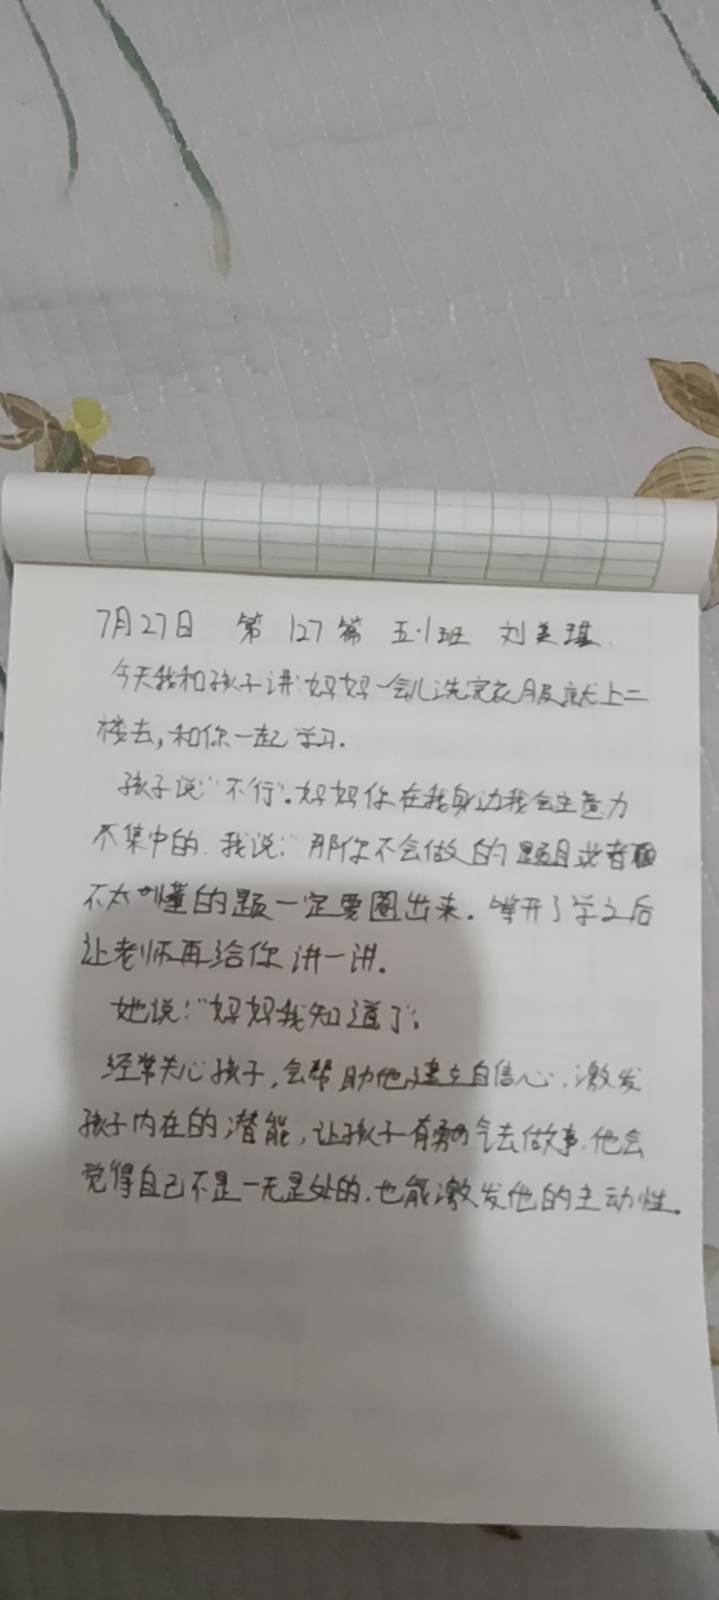 7月27日 第127篇 五.1班 刘美琪.
今天我和孩子讲:妈妈一会儿洗完衣服就上二
楼去,和你一起学习.
孩子说"不行".妈妈你在我身边我会注意力
不集中的.我说:"那你不会做的题目或者
不太懂的题一定要圈出来.等开了学之后
让老师再给你讲一讲.
她说:"妈妈我知道了".
经常关心孩子,会帮助他建立自信心.激发
孩子内在的潜能,让孩子有勇气去做事.他会
觉得自己不是一无是处的.也能激发他的主动性.